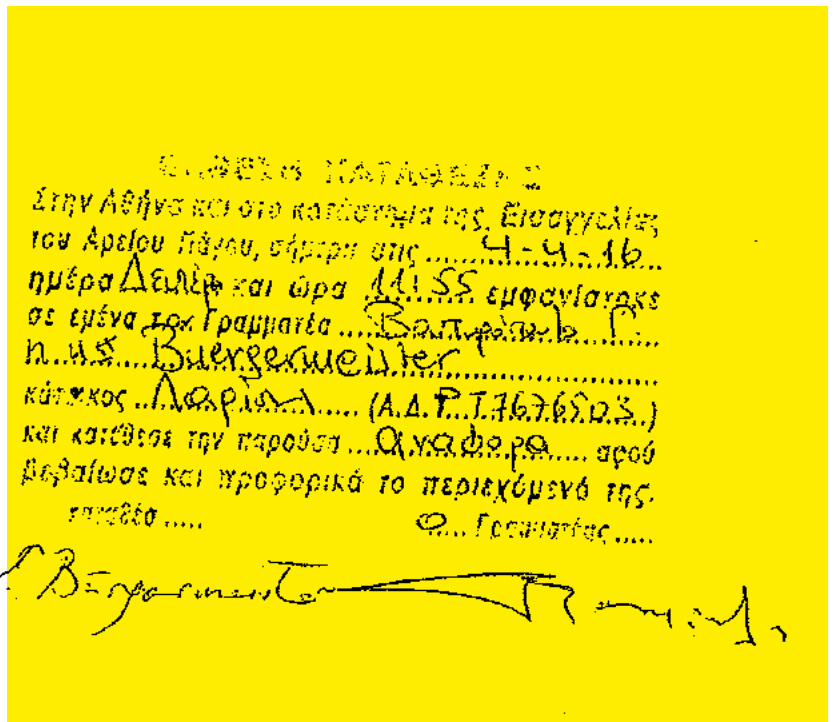 ΕΚΘΕΣΗ ΚΑΤΑΘΕΣΗΣ
Στην Αθήνα και στο κατάστημα της Εισαγγελίας
του Αρείου Πάγου, σήμερα στις ..... 4-4-16
ημέρα και ώρα 11:55 εμφανίστηκε
σε εμένα τον Γραμματέα
Buergermeister
κάτοικος Λάρισα ..... (Α.Δ. P.T.7676503.)
και κατέθεσε την παρούσα ... αναφορα ..... αφού
βεβαίωσε και προφορικά το περιεχόμενό της.
Ο.... Γραμματέας .....